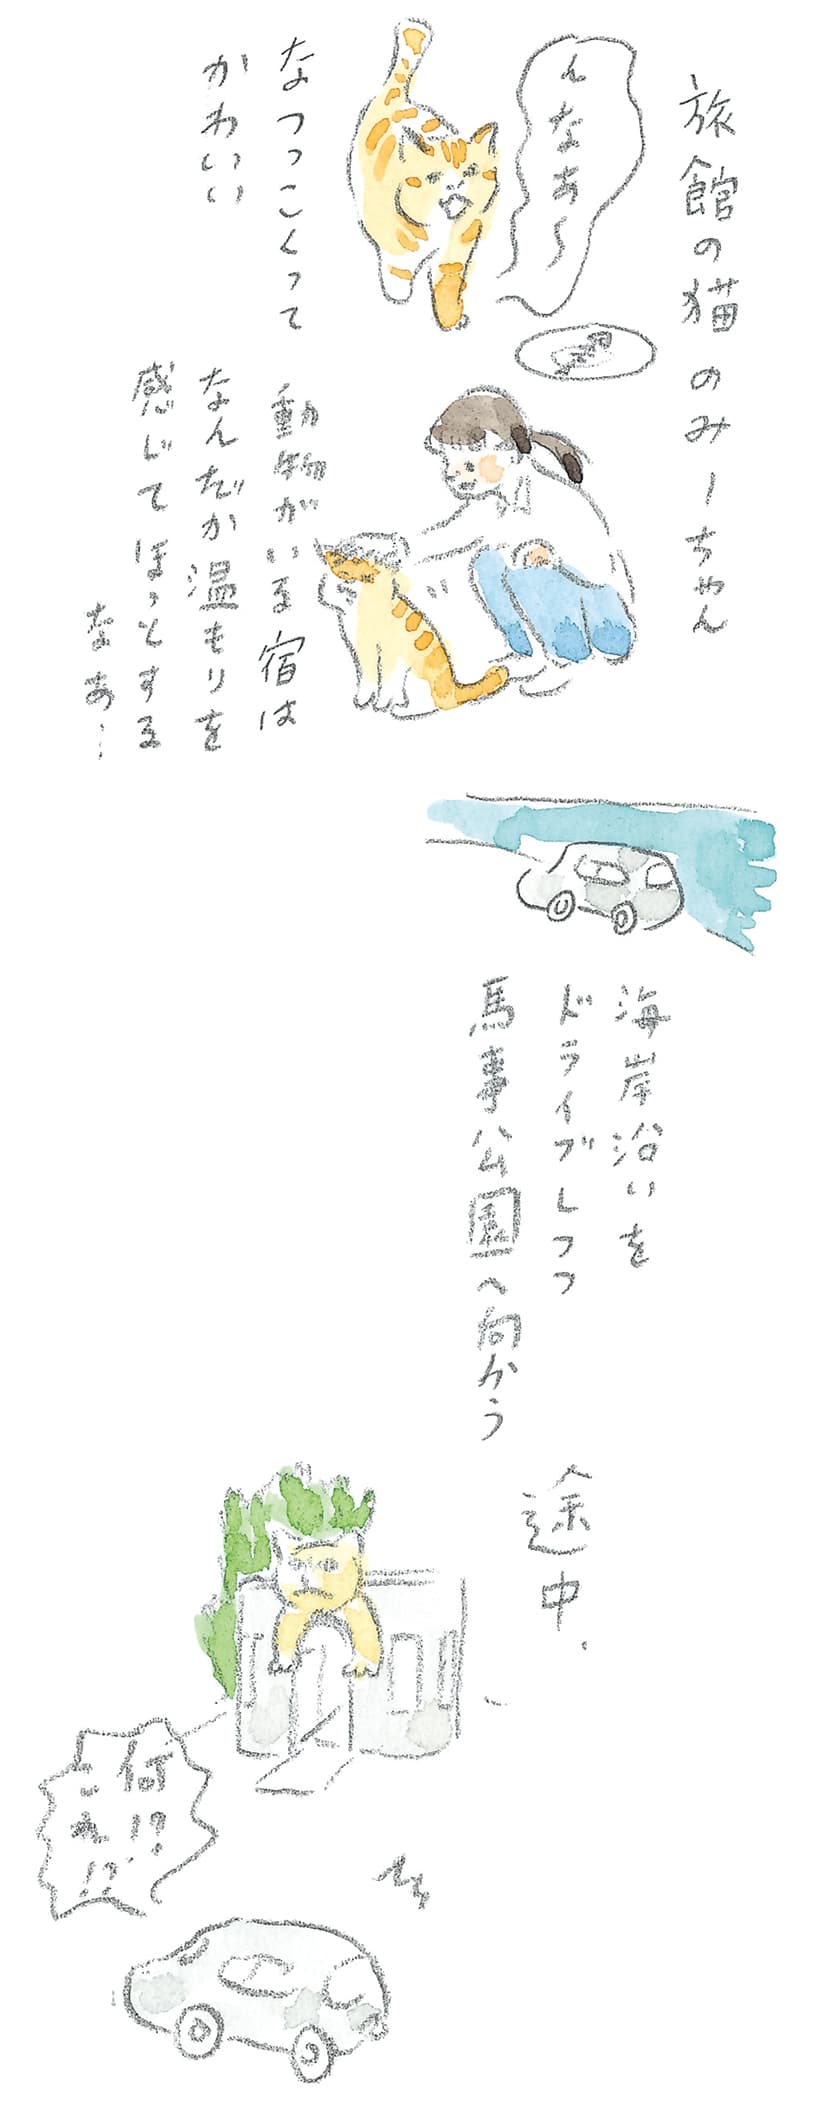 旅館の猫のみーちゃん
んなあ〜
なつっこくって
かわいい
動物がいる宿は
なんだか温もりを
感じてほっとする
なあー
海岸沿いを
ドライブしつつ
馬事公園へ向かう
途中、
何!?
こあ!?